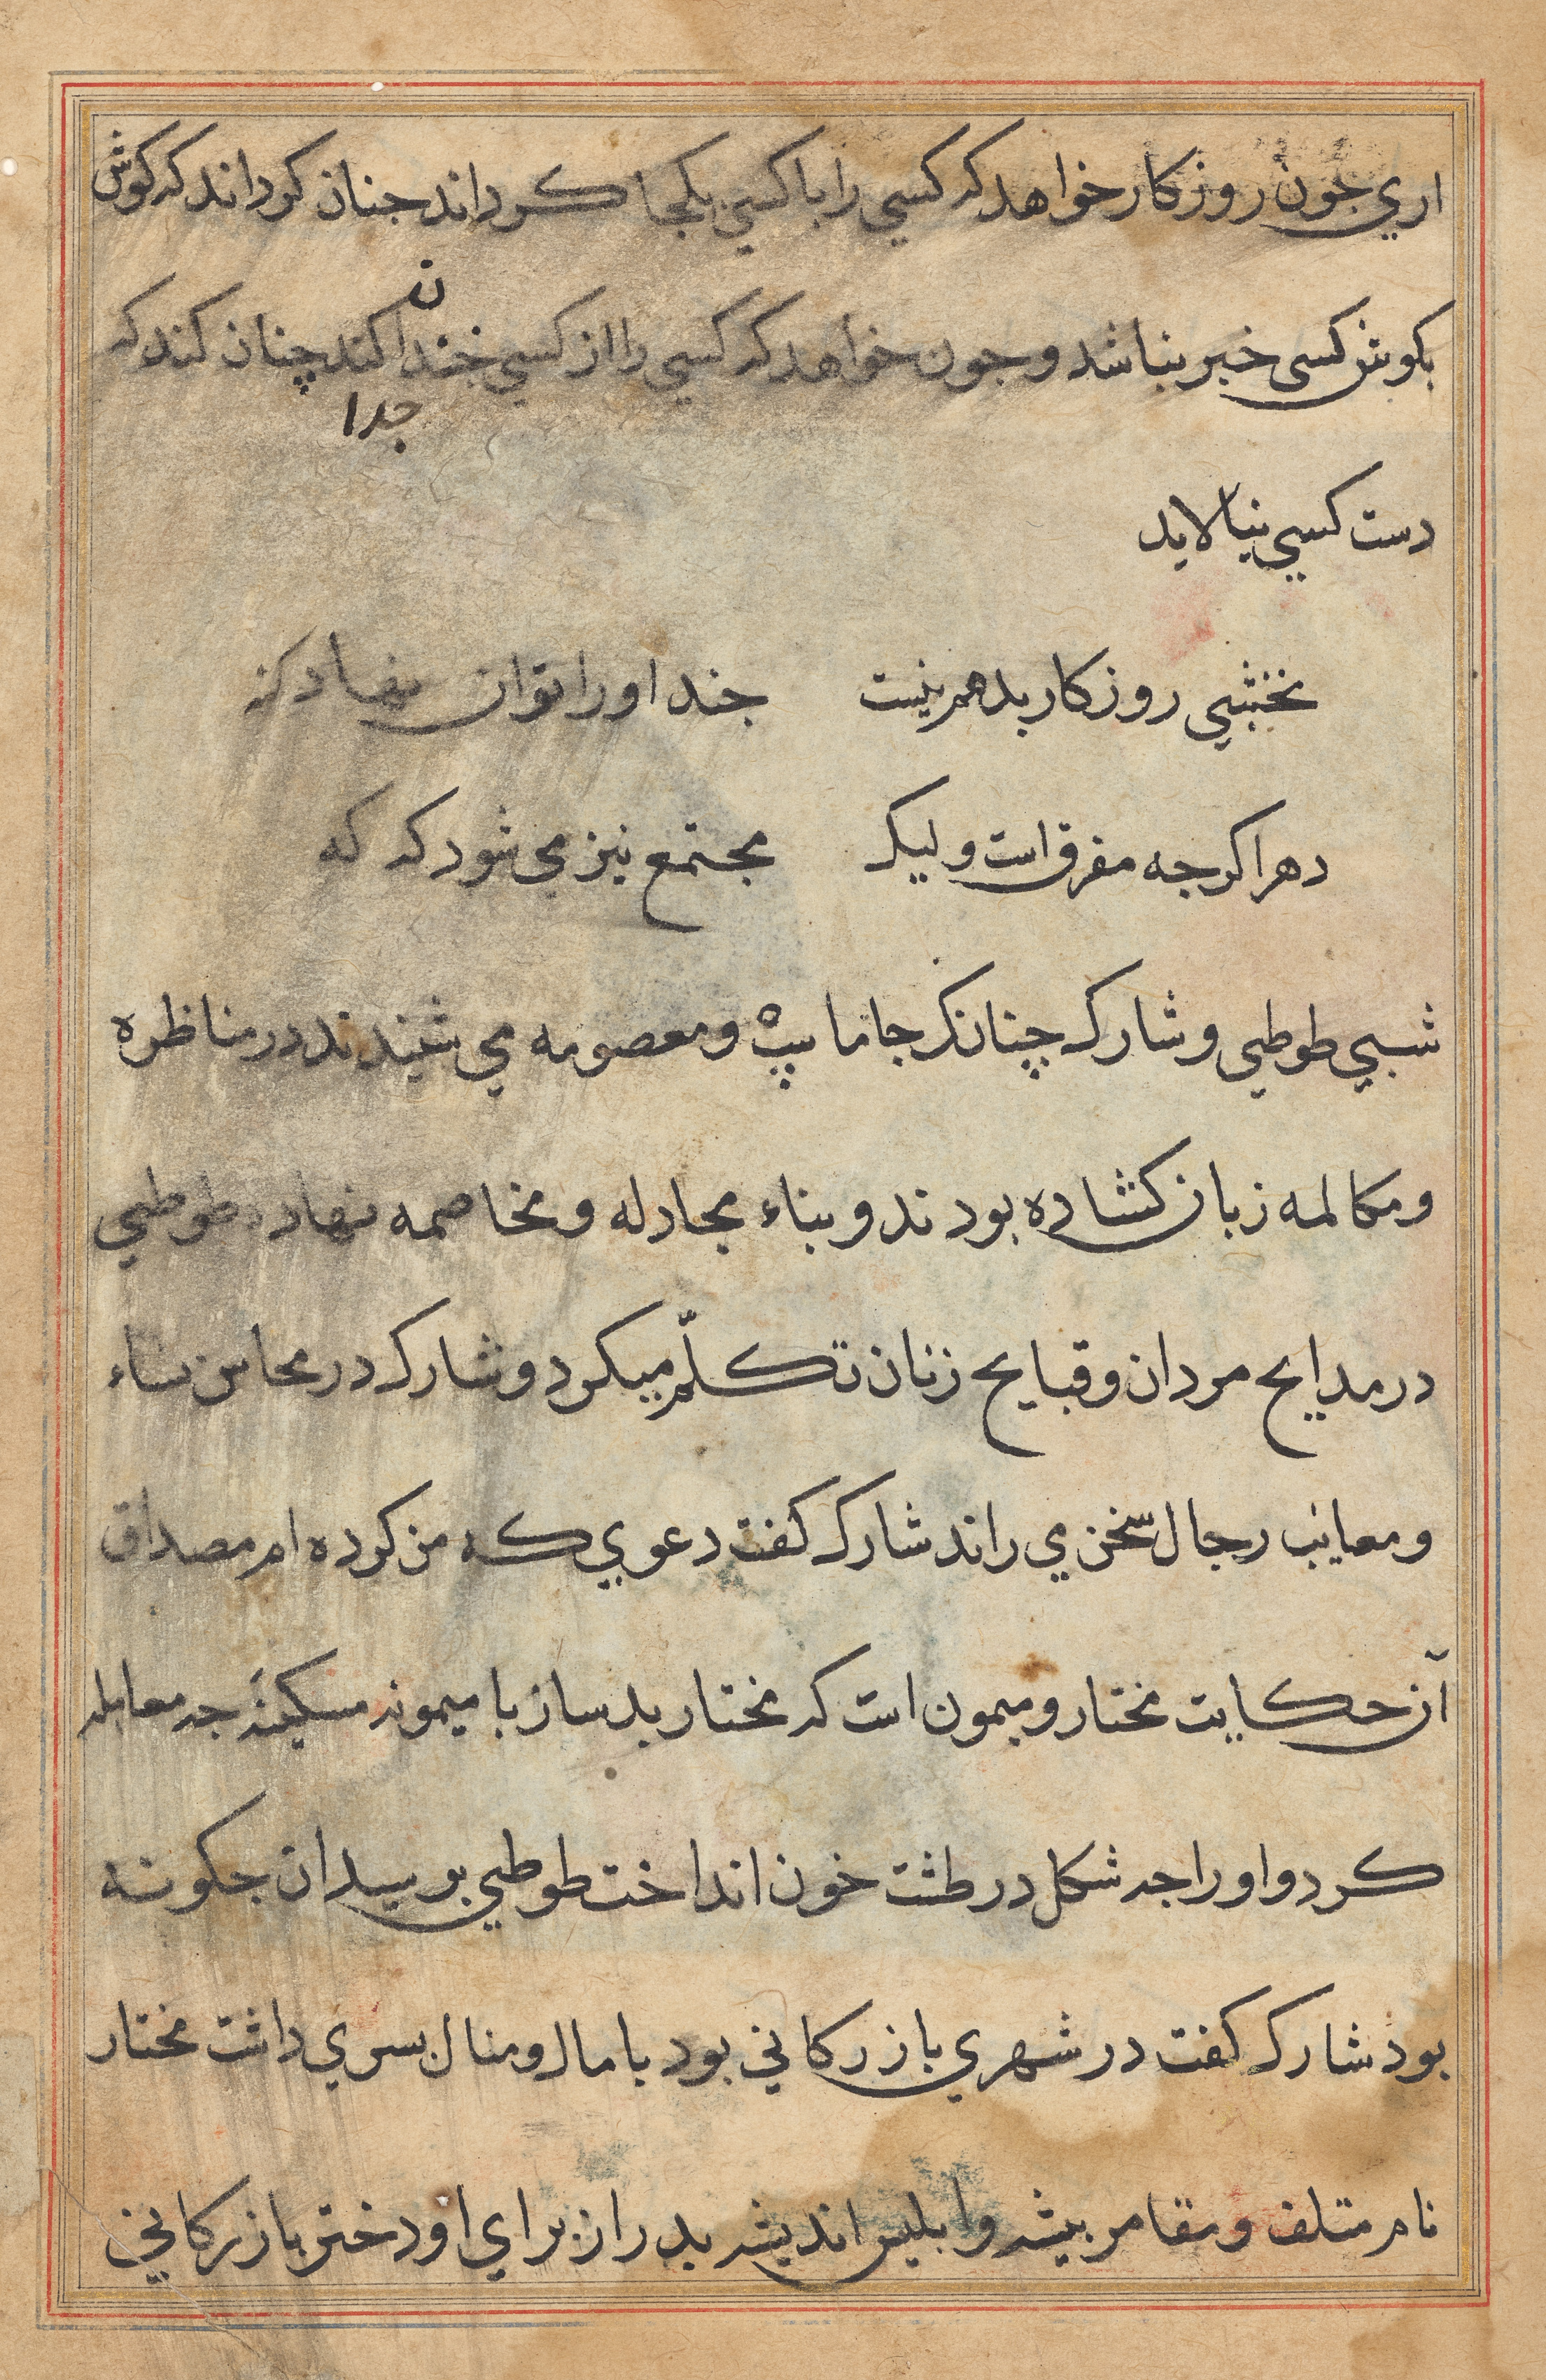 اري جون روزکار خواهد که کسي را با کسي یکجا کرداند جنان کرداند که کوش
ن
بکوش کسی خبر نباشد و جون خواهد که کسي را از کسي خندا کند چنان کند که
جدا
دست کسي نیالاید
نخشبي روزکار بد هم نیست جند او را توان نهاد که
دهر اکرجه مفرق است ولیک مجتمع نیز می شود که که
شبي طوطي و شارک چنانکه جاماسپ و معصومه می شنیدند در مناظره
و مکالمه زبان کشاده بودند و بناء مجادله و مخاصمه نهاده طوطي
در مدایح مردان و قبایح زنان تکلّم میکرد و شارک در محاسن نساء
و معایب رجال سخن ي راند شارک کفت دعوي که من کرده ام مصداق
آن حکایت مختار و میمون است که مختار بدساز با میمونه مسکینهٔ جه معامله
کرد و او را جه شکل در طشت خون انداخت طوطي برسید ان جکونه
بود شارک کفت در شهري بازرکاني بود با مال و منال بسري داشت مختار
نام متلف و مقامر بیشه و ابلیس اندیشه بدر از برای او دختر بازرکاني